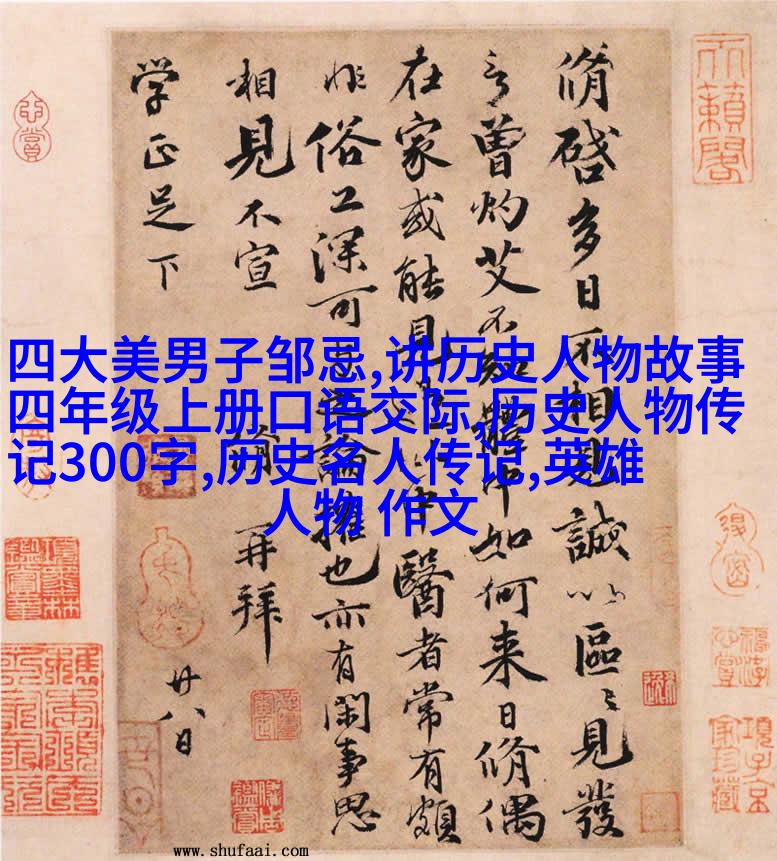 四大美男子邹忌,讲历史人物故事
四年级上册口语交际,历史人物传
记300字,历史名人传记,英雄
人物 作文
脩啓多日不相見誠以區〻見發
言曾灼艾不知體中如何来日脩偶
在家或能見過此中醫者常有頗
非俗工深可與之論權也亦有閑事思
相見不宣 脩再拜
廿八日
学正足下
天籟閣
www.shufaai.com